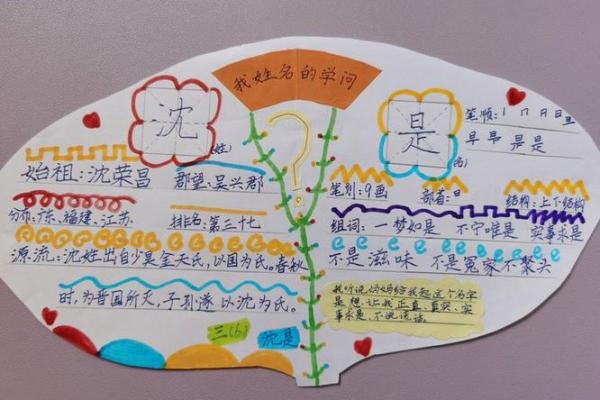 我姓名的学问
沈
(姓)
始祖:沈荣昌 郡望:吴兴郡
分布:广东、福建、江苏 排名:第三十七
源流:沈姓出自少昊金天氏,以国为氏。春秋
时,为晋国所灭,子孙遂以沈为氏。
三(6) 沈是
是
(名)
笔顺:丨 冂 日 日 旦
早 早 昰 是
笔划:9画 部首:日 结构:上下结构
组词:一梦如是 不宁唯是 实事求是
不是滋味 不是冤家不聚头
我听说妈妈给我起这个名字
是想让我正直、真实、实
事求是,不说谎话。